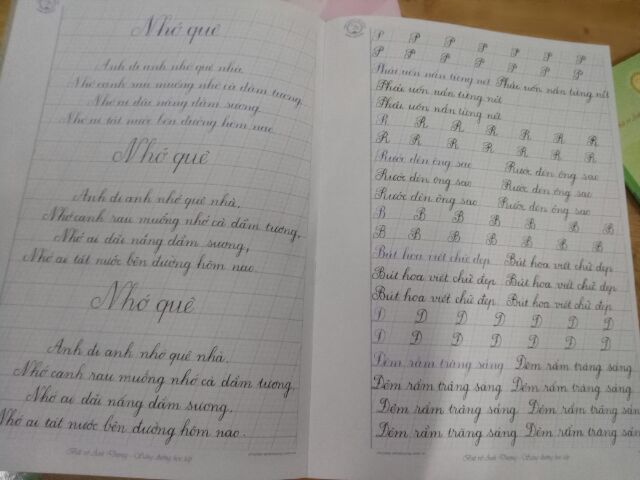 Nhớ quê
Anh đi anh nhớ quê nhà
Nhớ canh rau muống nhớ cà dầm tương
Nhớ ai dãi nắng dầm sương
Nhớ ai tát nước bên đường hôm nao
Nhớ quê
Anh đi anh nhớ quê nhà,
Nhớ canh rau muống nhớ cà dầm tương,
Nhớ ai dãi nắng dầm sương,
Nhớ ai tát nước bên đường hôm nao.
Nhớ quê
Anh đi anh nhớ quê nhà,
Nhớ canh rau muống nhớ cà dầm tương,
Nhớ ai dãi nắng dầm sương.
Nhớ ai tát nước bên đường hôm nao.
Bút vở Ánh Dương - Sáng đường học tập
P P P P P P P
P P P P P P P
Phải uốn nắn từng nét Phải uốn nắn từng nét
Phải uốn nắn từng nét
Phải uốn nắn từng nét
R R R R R R R
R R R R R R R
Rước đèn ông sao Rước đèn ông sao
Rước đèn ông sao Rước đèn ông sao
Rước đèn ông sao Rước đèn ông sao
B B B B B B B
B B B B B B B
Bút hoa viết chữ đẹp Bút hoa viết chữ đẹp
Bút hoa viết chữ đẹp Bút hoa viết chữ đẹp
Bút hoa viết chữ đẹp Bút hoa viết chữ đẹp
Đ Đ Đ Đ Đ Đ Đ
Đ Đ Đ Đ Đ Đ Đ
Đêm rằm trăng sáng Đêm rằm trăng sáng
Đêm rằm trăng sáng Đêm rằm trăng sáng
Đêm rằm trăng sáng Đêm rằm trăng sáng
Đêm rằm trăng sáng Đêm rằm trăng sáng
Bút vở Ánh Dương - Sáng đường học tập